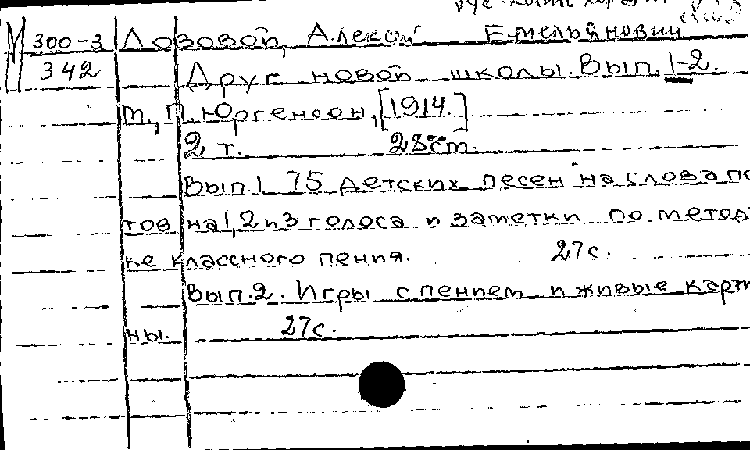 М 300-3 Лозовой, Алексей Емельянович
342 Друг новой школы. Вып. 1-2.
М., П. Юргенсон, [1914.]
2 т. 28см.
Вып.1 75 детских песен на слова поэ
тов на 1, 2 и 3 голоса и заметки по методи
ке классного пения. 27с.
Вып.2. Игры с пением и живые карти
ны. 27с.